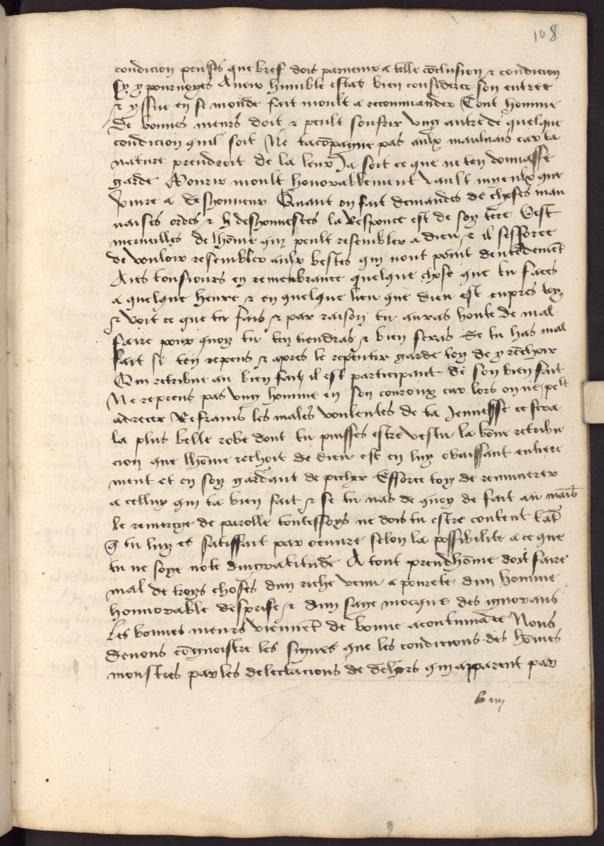 108
condicion penses que bref dois parvenir a telle conclusion et condicion
Sy y pourvoyes Avoir humble estat bien considerer son entree
et yssue en se monde fait moult a recommander Tout homme
de bonnes meurs doit et peult souffrir ung autre de quelque
condicion quil soit Ne tacompagne pas aulx maulvais car ta
nature prendroit de la leur Ja soit ce que ne ten donnasse
garde Mourir moult honnorablement vault mieulx que
vivre a deshonneur Quant on fait demandes de choses mau
vaises ordes et deshonnestes la responce est de soy tere Cest
merveilles de lhome qui peult resembler a dieu et il sefforce
de vouloir resembler aulx bestes qui nont point dentendement
Aies tousiours en remembrance quelque chose que tu faces
a quelque heure et en quelque lieu que dieu est empres toy
et voit ce que tu fais et par raison tu auras honte de mal
faire pour quoy tu ten tiendras et bien feras Se tu has mal
fait se ten repens et apres le repentir garde toy de y rechoir
Qui retribue au bien fait il est participant de son bien fait
Ne reprens pas ung homme en son couroux car lors on ne pelt
adrecer Refrains les males voulentes de ta Jennesse ce sera
la plus belle robe dont tu puisses estre vestu la bone retribu
cion que lhome rechoit de dieu est en luy obaissant entiere
ment et en soy gardant de picher Efforce toy de remunerer
a celluy qui ta bien fait et se tu nas de quoy de fait au mains
le remercye de parolle toutesfoys ne dois tu estre content tat
q tu luy es satisfait par oeuvre selon la possibilite a ce que
tu ne soye note dingratitude A tout preudhome doit faire
mal de troys choses dun riche venu a povrete dun homme
honnorable desprise et dun sage mocque des ignorans
Les bonnes meurs viennet de bonne acoustumace Nous
devons congnoistre les signes que les condicions des homes
monstres par les delectacions de dehors qui apparent par
b iiii